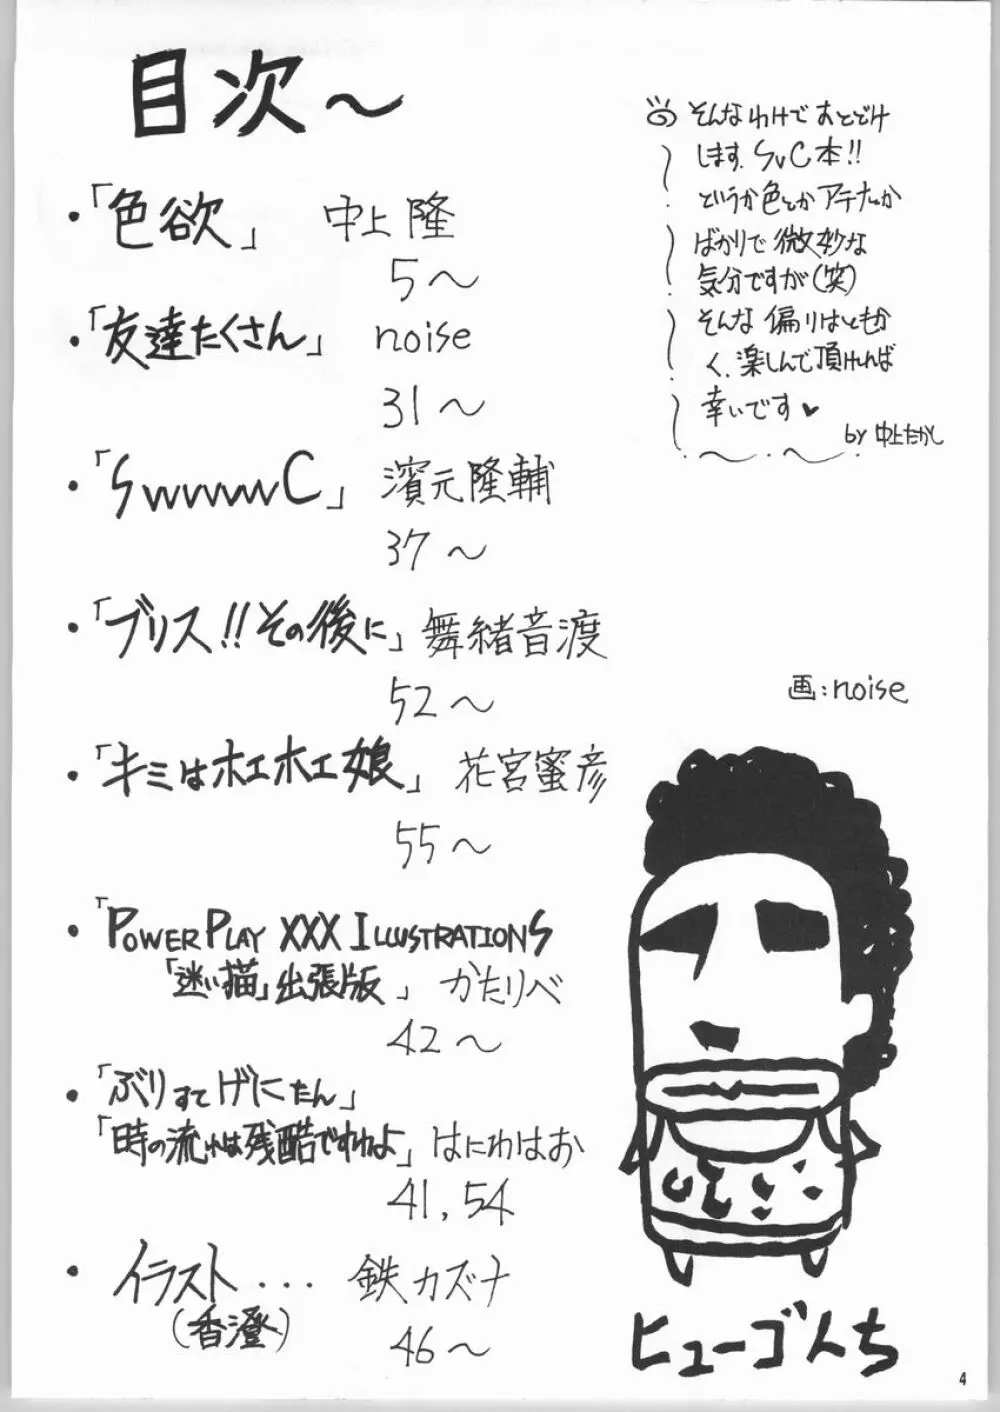 目次～
・「色欲」 中上隆
5～
・「友達たくさん」 noise
31～
・「SwvwwwC」 濱元隆輔
37～
・「ブリス!!その後に」 舞緒音渡
52～
・「キミはホエホエ娘」 花宮蜜彦
55～
・「POWER PLAY XXX ILLUSTRATIONS
「迷い描」出張版」 かたりべ
42～
・「ぶりすてげにたん」
「時の流れは残酷ですわよ」 はにわはお
41, 54
・イラスト... 鉄カズナ
(香澄)
46～
そんなわけでおとどけ
します、SvC本!!
というか色とかアテナとか
ばかりで微妙な
気分ですが(笑)
そんな偏りはともか
く、楽しんで頂ければ
幸いです♥
by 中上たかし
画:noise
ヒューゴんち
4